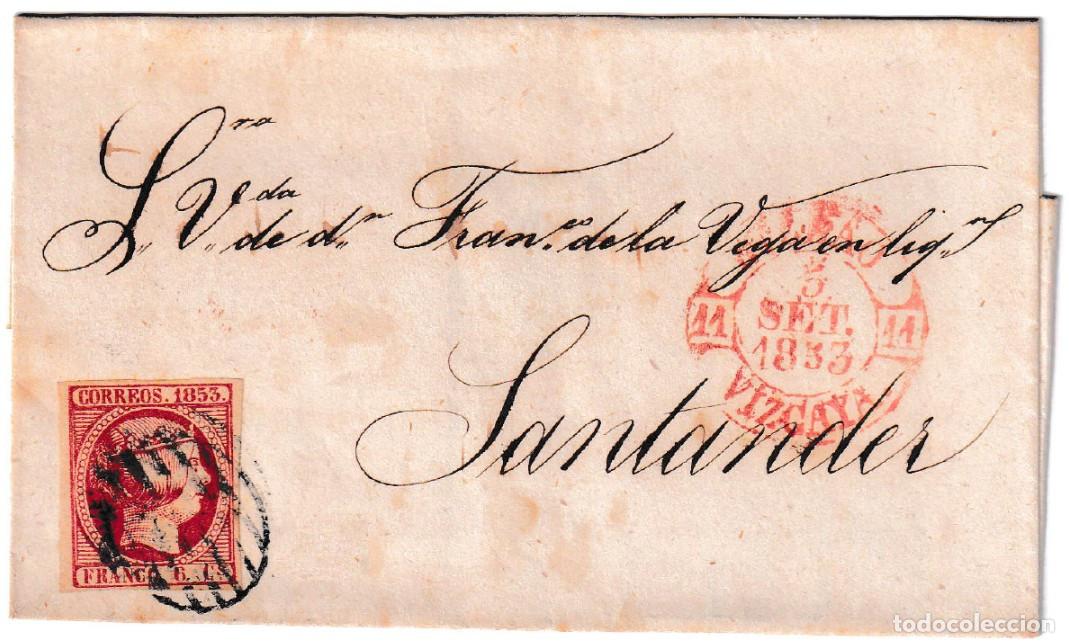 S.ra
V.da de d.n Fran.co de la Vega en liq.n
Santander
BILBAO
5
SET.
1853
11 11
VIZCAYA
CORREOS. 1853.
FRANCO 6. CS
todocoleccion